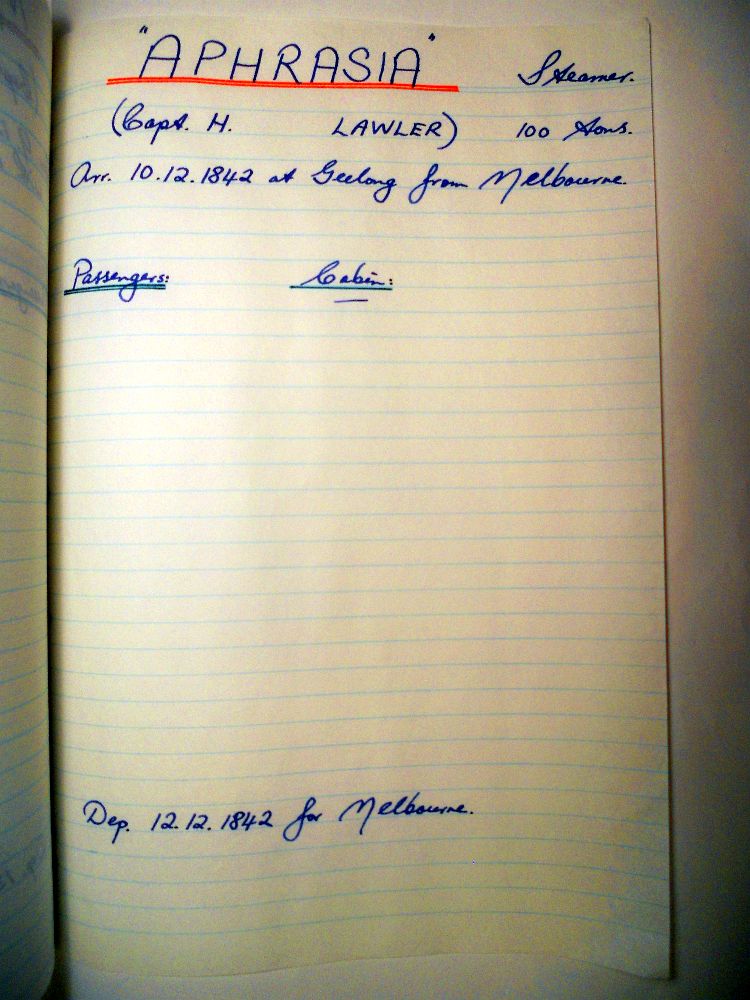 "APHRASIA" Steamer.
(Capt. H. LAWLER) 100 Tons.
Arr. 10.12.1842 at Geelong from Melbourne.
Passengers: Cabin:
Dep. 12.12.1842 for Melbourne.